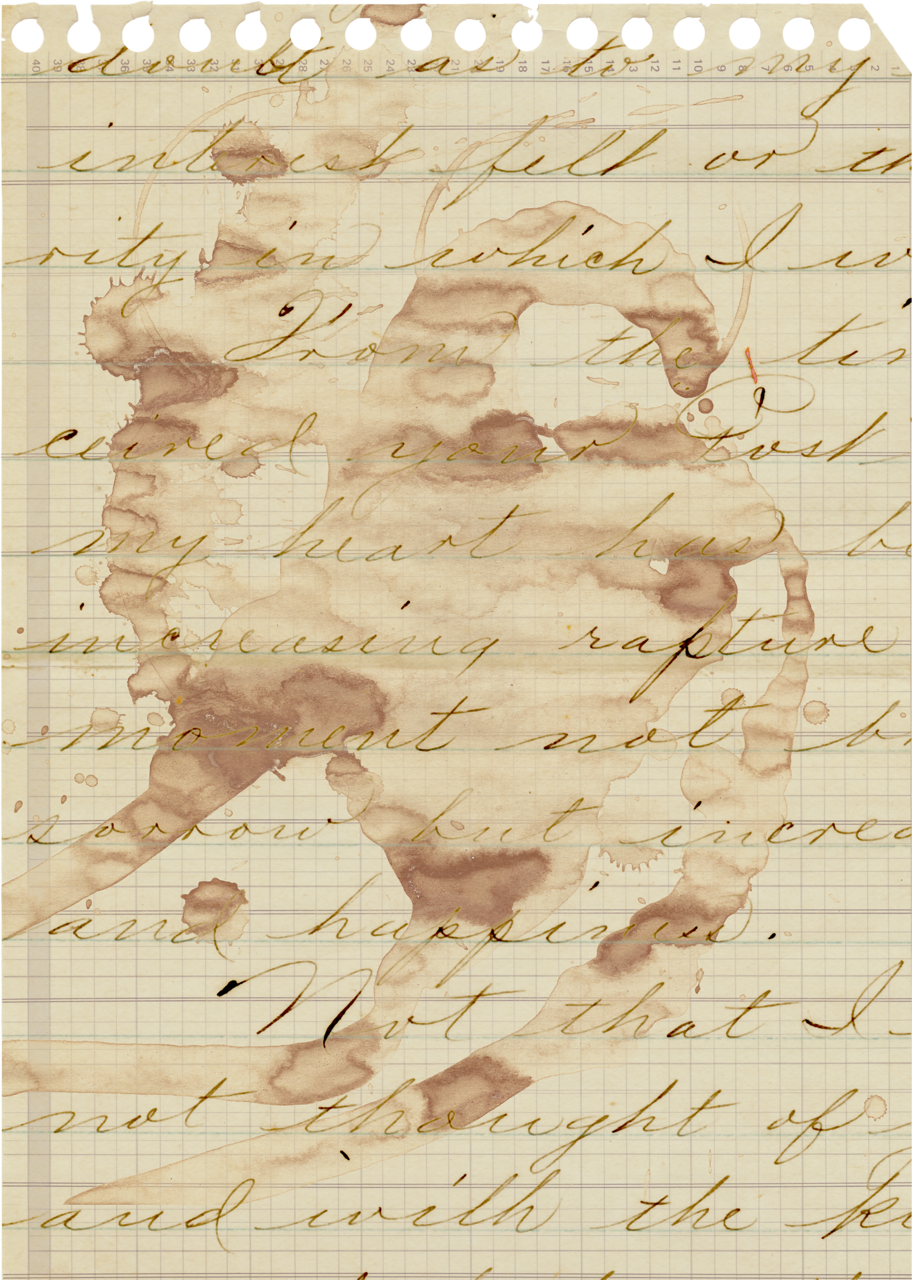 40 39 38 37 36 35 34 33 32 31 30 29 28 27 26 25 24 23 20 19 18 17 16 15 13 12 11 10 9 8 7 6 5 2 1
doubt as to my
interest felt or th
rity in which I w
From the tim
ceived your Post
my heart has be
increasing rapture
moment not br
sorrow but increa
and happiness.
Not that I
not thought of
and with the ki